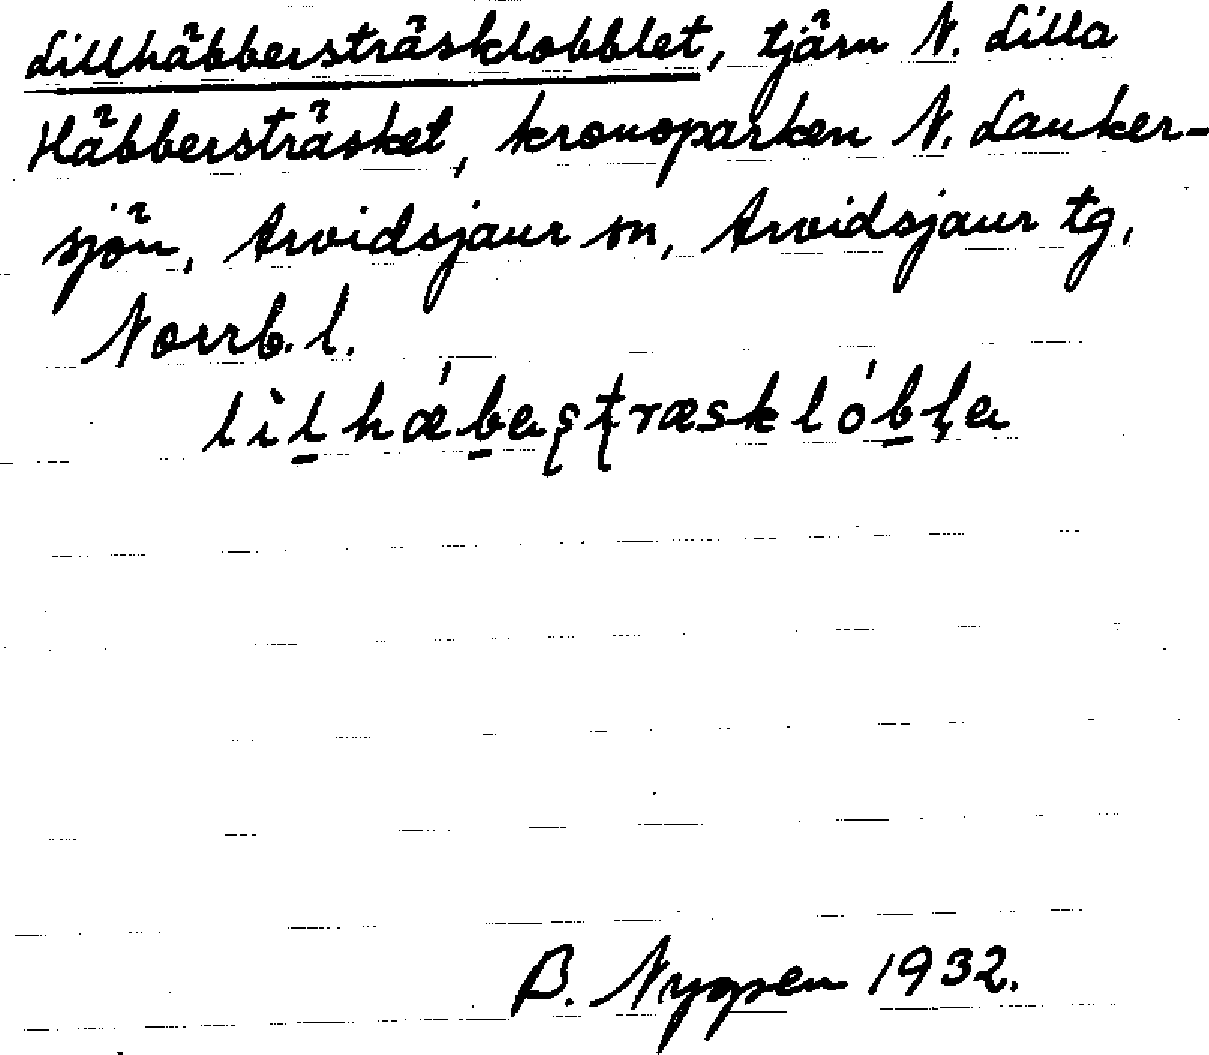 Lillhäbbersträsklobblet, tjärn N. Lilla
Häbbersträsket, kronoparken N. Lauker-
sjön, Arvidsjaur sn, Arvidsjaur tg,
Norrb. l.
lìl̠hǽb̠eʂʈræsklób̠ḷe
B. Nygren 1932.